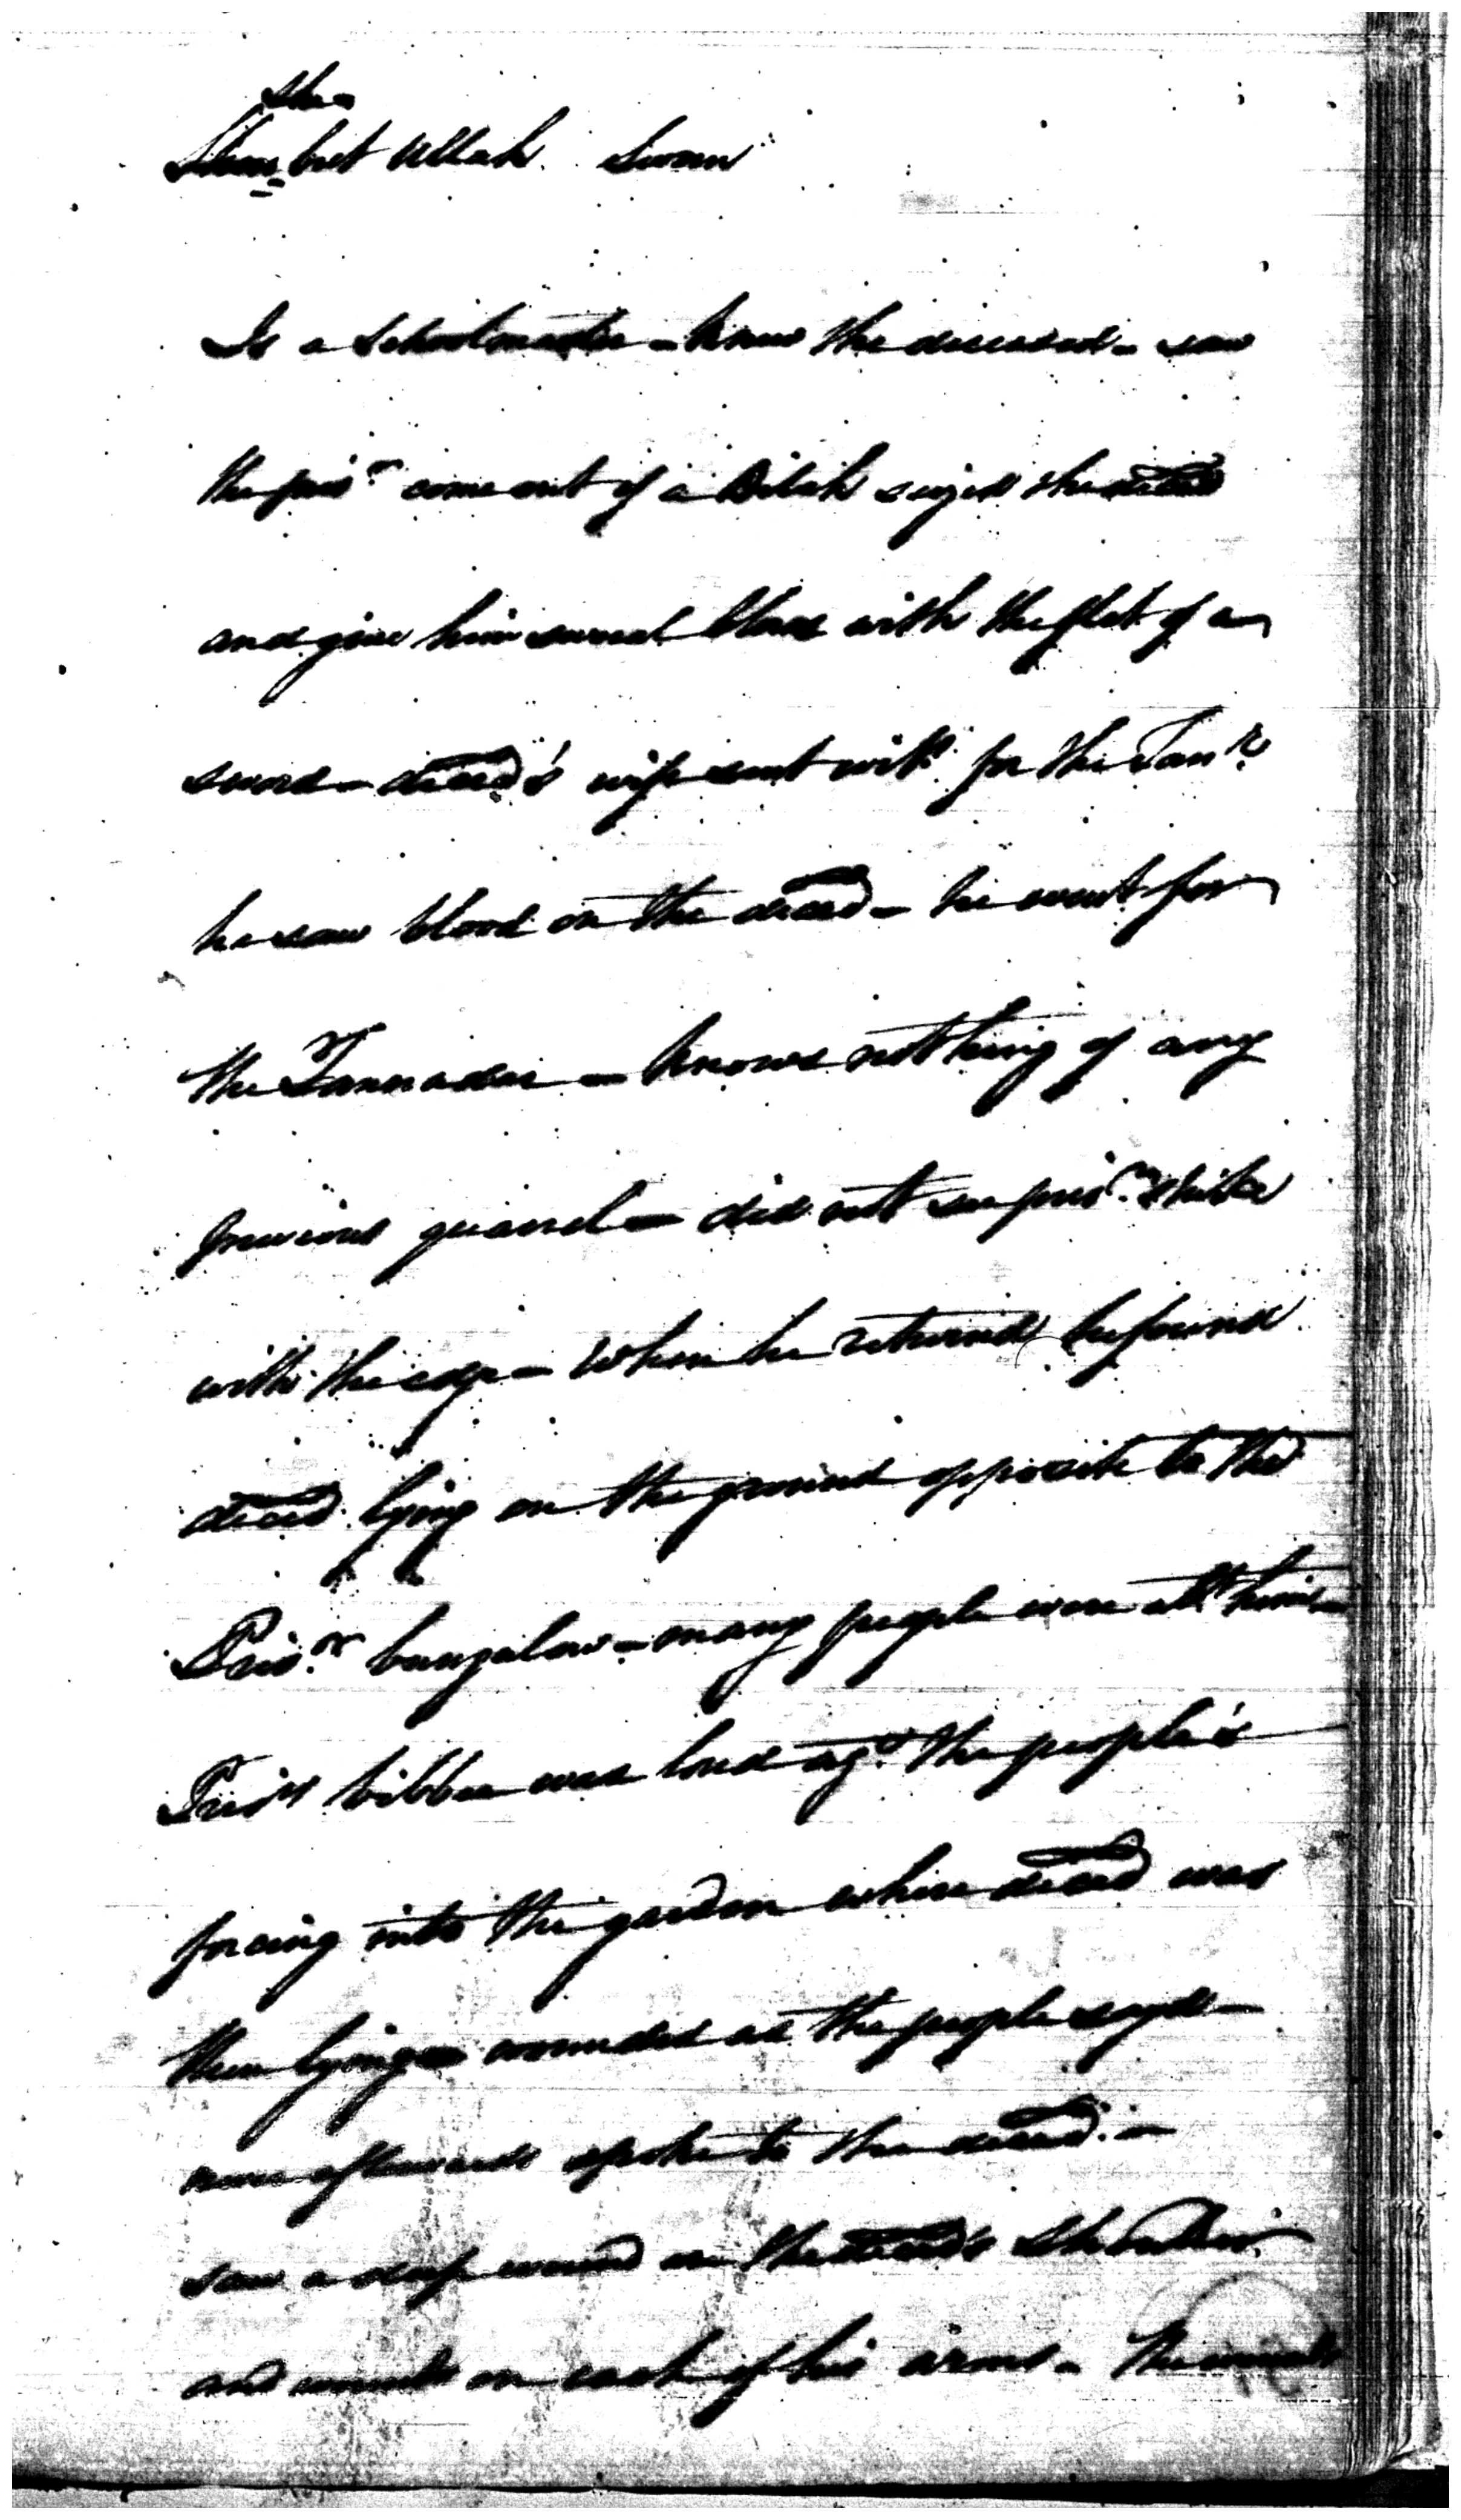 She
Shem bet Ullah. Sworn
Is a Schoolmaster - knew the deceased - saw
the pris.r come out of a Dilah seized the deced
and give him several blows with the flat of a
sword - deced's wife sent wit.s for the Tan.r
he saw blood on the deced - he went for
the Tannadar - knows nothing of any
previous quarrel - did not see pris.r strike
with the edge - When he returned he found
deced lying on the ground opposite to the
Pris.r bungalow - many people were abt him -
Pris.rs bibbee was loud ag.t the people's
forcing into the garden where deced was
then lying wounded as the people sayd -
never afterwards spoke to the deced. -
saw a deep wound on the deced's shoulder
and wounds on each of his arms - The wounds